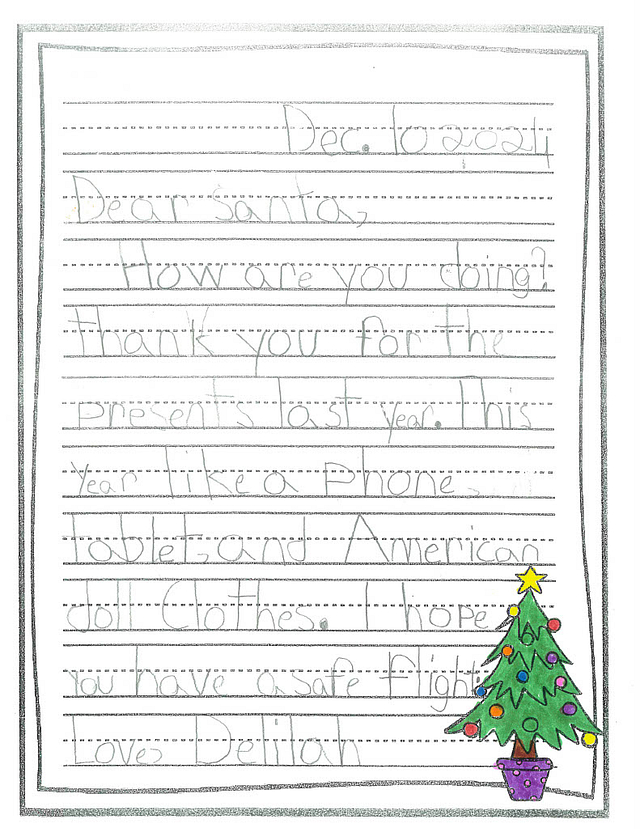 Dec. 10 2024
Dear Santa,
How are you doing?
thank you for the
presents last year. This
year like a Phone,
tablet, and American
doll Clothes. I hope
you have a safe flight.
Love, Delilah